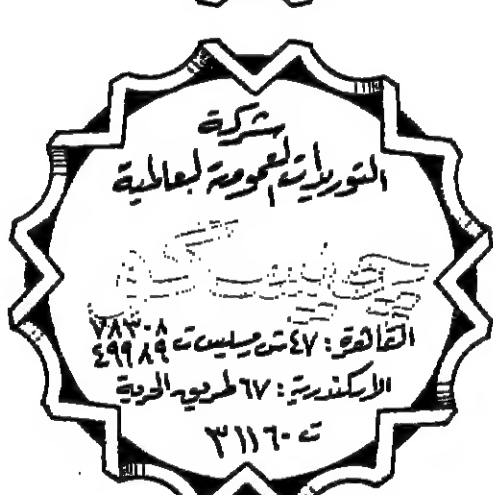 شركة
التوريدات العمومية العالمية
القاهرة : ٤٧ ش رمسيس ت ٧٨٣٠٨
٤٩٩٨٩
الاسكندرية : ٦٧ طريق الحرية
ت ٣١١٦٠